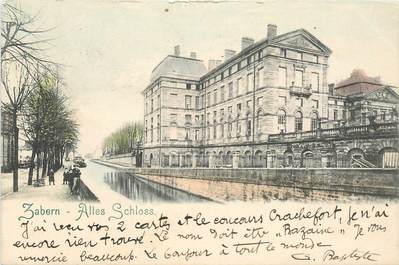 Zabern - Altes Schloss.
J'ai reçu vos 2 cartes et le concours Crachefort, Je n'ai
encore rien trouvé. Le nom doit être "Bazaine" Je vous
remercie beaucoup. Le bonjour à tout le monde
G. Baptiste